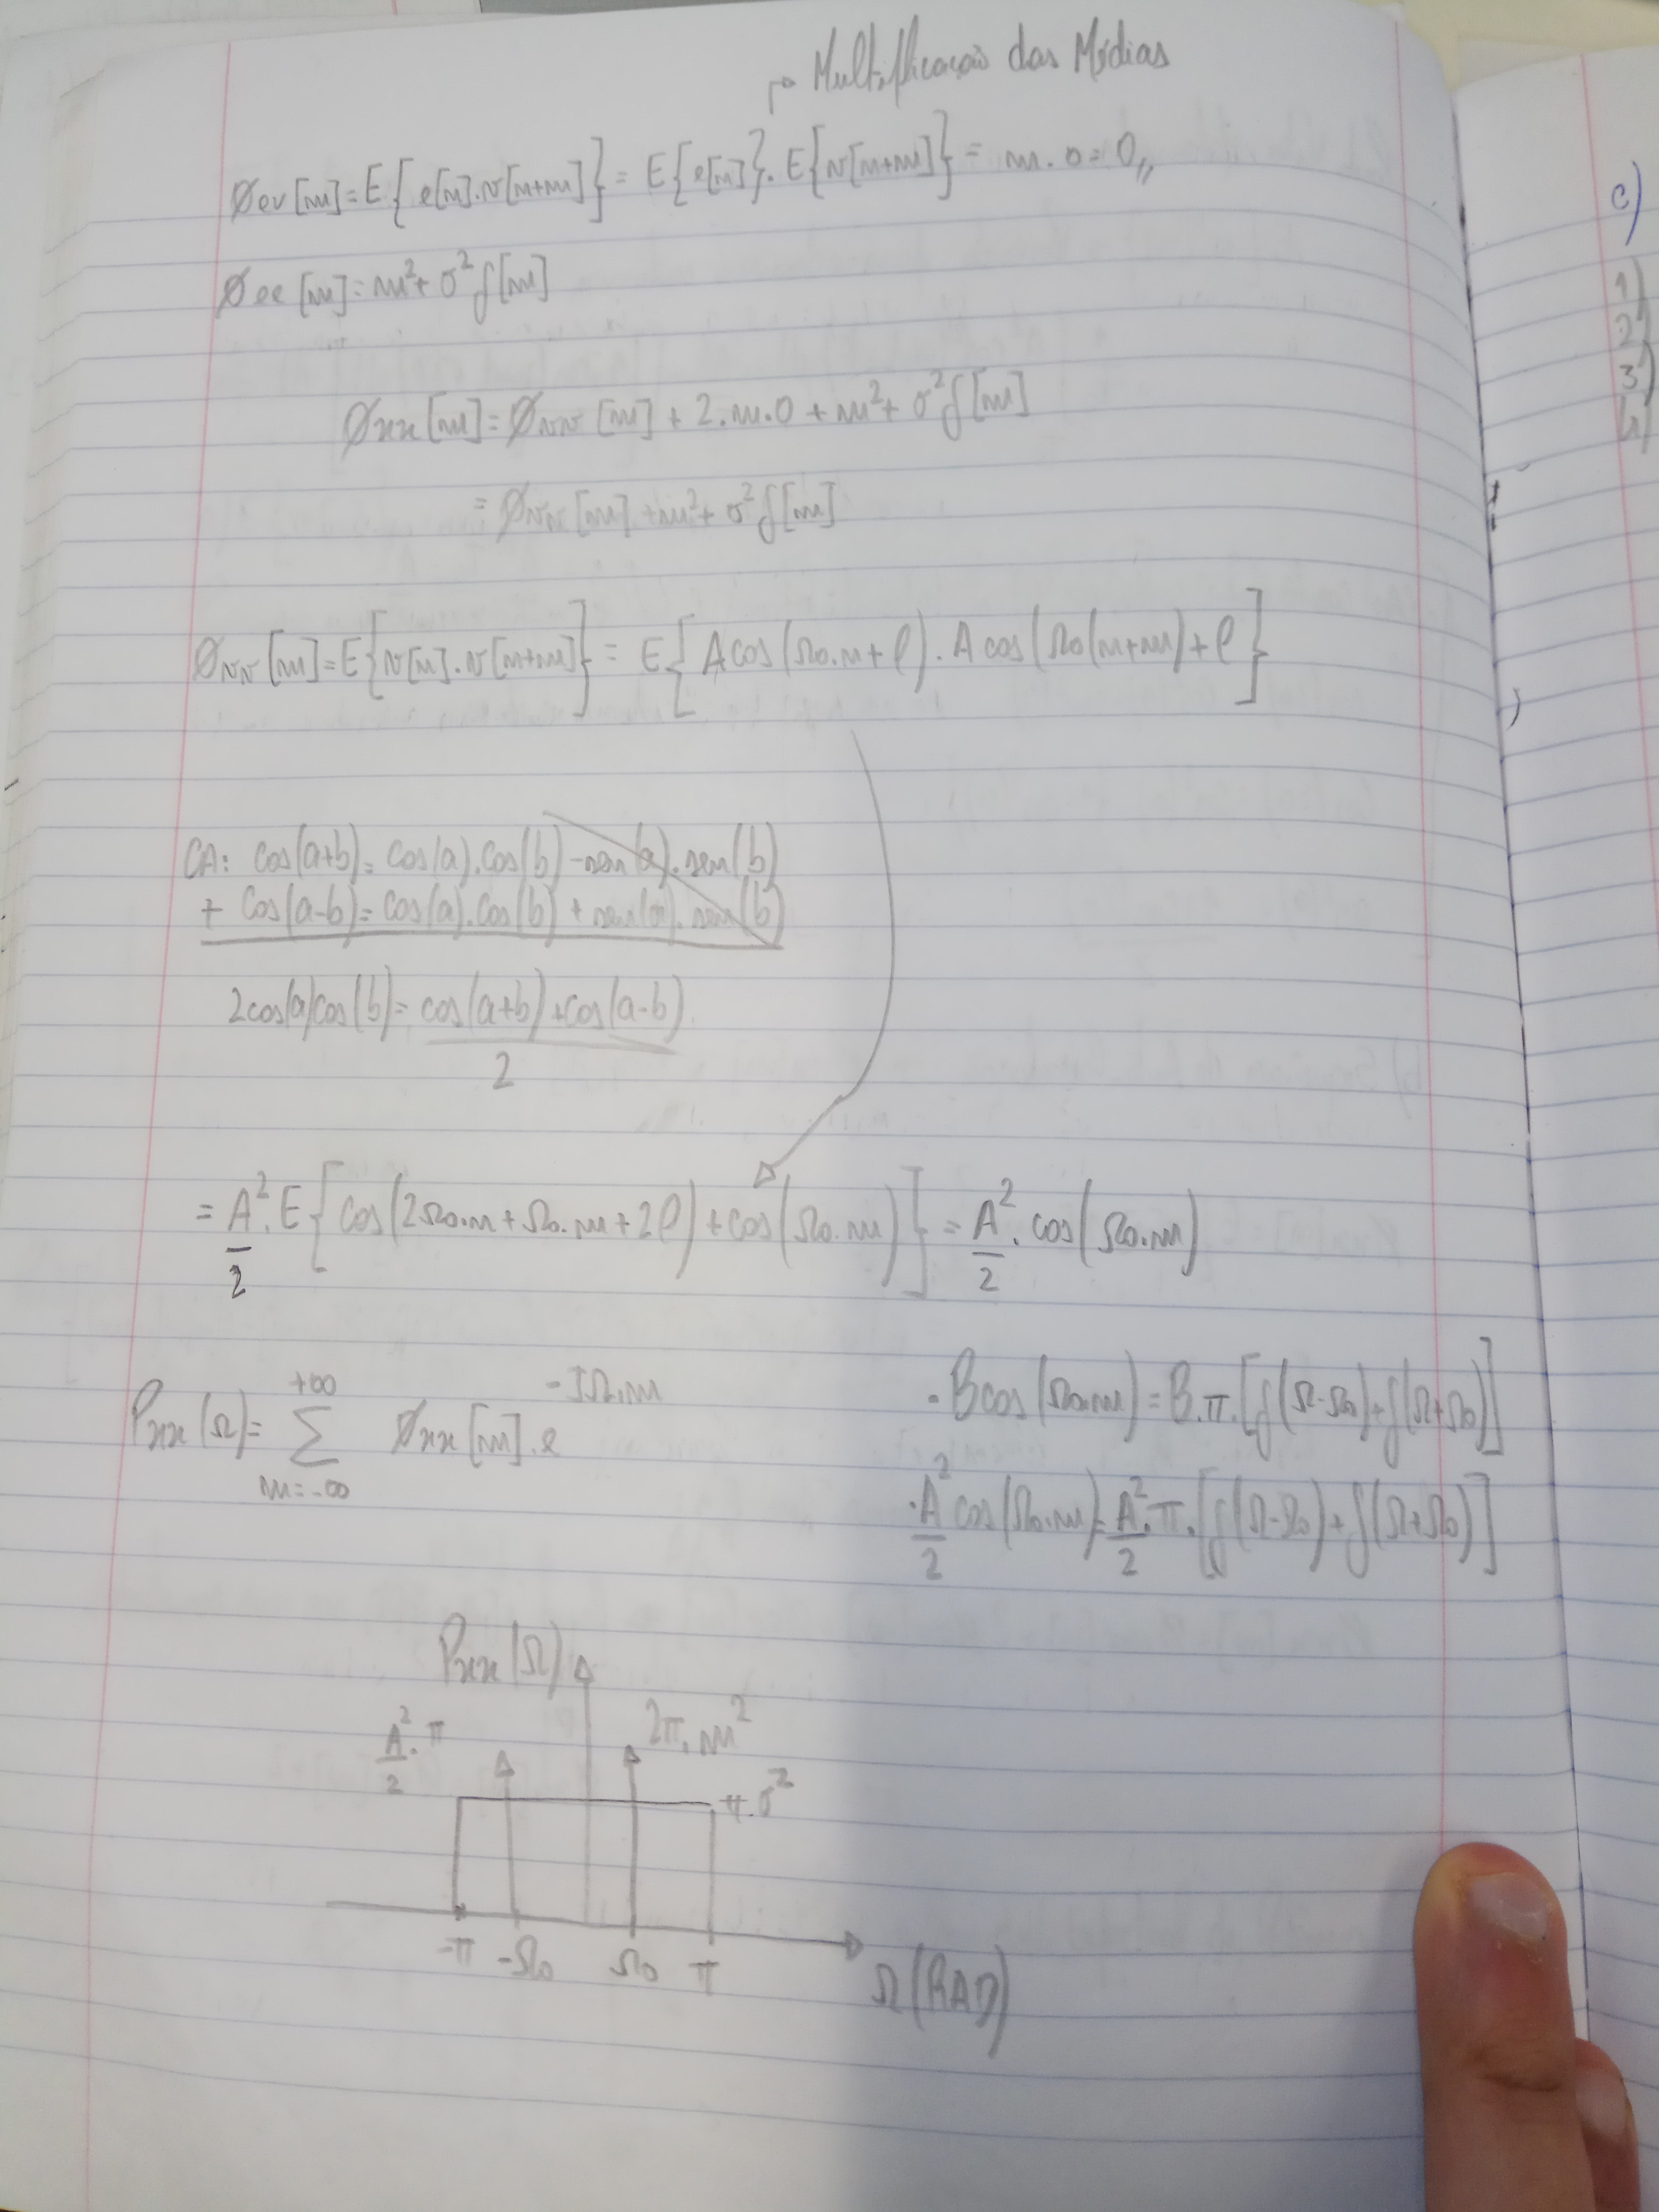 → Multiplicação das Médias
Øev[m] = E{e[n].v[n+m]} = E{e[n]}.E{v[n+m]} = m.0 = 0,,
Øee[m] = m² + σ²δ[m]
Øxx[m] = Øvv[m] + 2.m.0 + m² + σ²δ[m]
= Øvv[m] + m² + σ²δ[m]
Øvv[m] = E{v[n].v[n+m]} = E{A cos(Ω0.n+φ).A cos(Ω0(n+m)+φ}
CA: cos(a+b) = cos(a).cos(b) - sen(a).sen(b)
+ cos(a-b) = cos(a).cos(b) + sen(a).sen(b)
2cos(a)cos(b) = cos(a+b)+cos(a-b)
2
= A²/2 . E{cos(2Ω0.n + Ω0.m + 2φ) + cos(Ω0.m)} = A²/2 . cos(Ω0.m)
Pxx(Ω) = +∞ Σ m=-∞ Øxx[m].e -JΩ.m
. Bcos(Ω0.m) = B.π.[δ(Ω-Ω0)+δ(Ω+Ω0)]
. A²/2 cos(Ω0.m) = A²/2 . π.[δ(Ω-Ω0)+δ(Ω+Ω0)]
Pxx(Ω)
A²/2 . π
2π.m²
π.σ²
-π -Ω0 Ω0 π
Ω(RAD)
c)
1)
2)
3)
4)